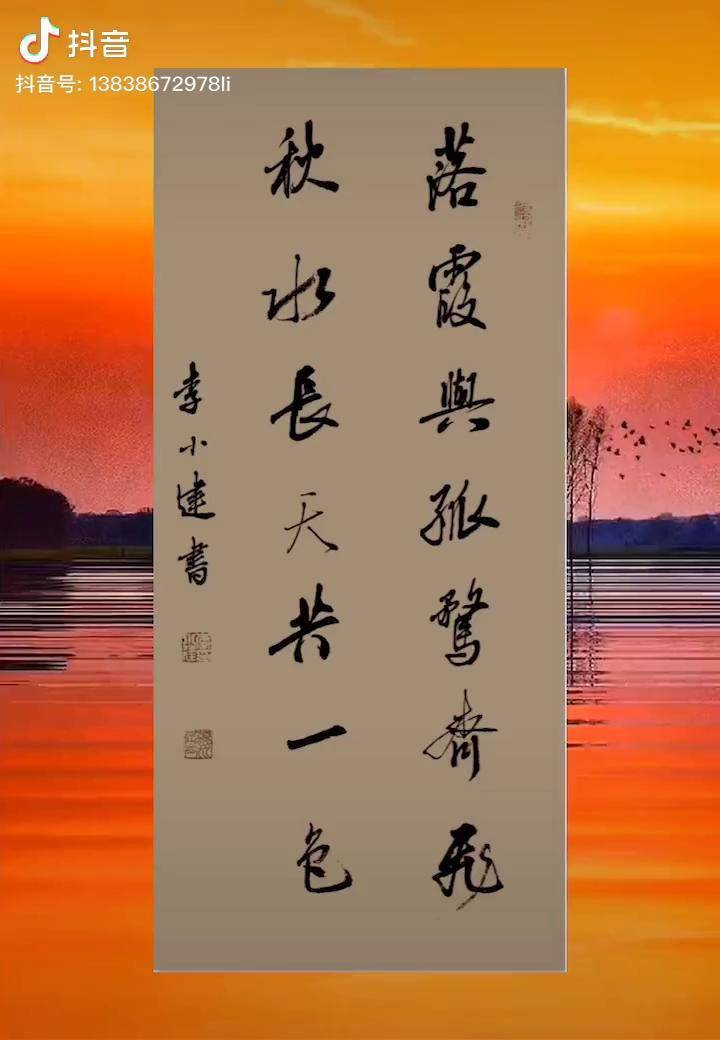 抖音
抖音号: 13838672978li
落霞與孤鶩齊飛
秋水長天共一色
李小建書